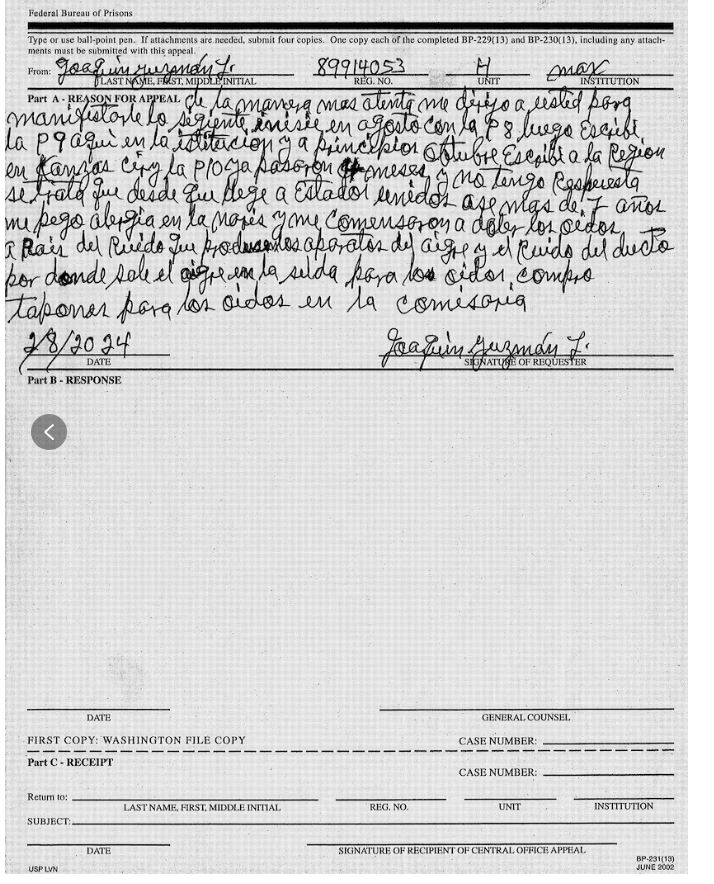 Federal Bureau of Prisons
Type or use ball-point pen. If attachments are needed, submit four copies. One copy each of the completed BP-229(13) and BP-230(13), including any attach-
ments must be submitted with this appeal.
From: Joaquin Guzmán L. 89914053 H max
LAST NAME, FIRST, MIDDLE INITIAL REG. NO. UNIT INSTITUTION
Part A - REASON FOR APPEAL de la manera mas atenta me dirijo a usted para
manifistarle lo segiente inisie en agosto con la P8, luego Escribi
la P9 aqui en la istitucion y a principios Obtubre Escribi a la Region
en Kanzas City la P10 ya pasaron 4 meses, y no tengo Respuesta
se trata que desde que llege a Estados unidos ase mas de 7 años
me pego alergia en la naris y me Comensaron a doler los oidos
a Rais del Ruido que producen los aparatos del aigre y el Ruido del ducto
por donde sale el aigre en la selda para los oidos, compro
tapones para los oidos en la comesaria
2/8/2024 Joaquin Guzmán L.
DATE SIGNATURE OF REQUESTER
Part B - RESPONSE
DATE GENERAL COUNSEL
FIRST COPY: WASHINGTON FILE COPY CASE NUMBER:
Part C - RECEIPT
CASE NUMBER:
Return to:
LAST NAME, FIRST, MIDDLE INITIAL REG. NO. UNIT INSTITUTION
SUBJECT:
DATE SIGNATURE OF RECIPIENT OF CENTRAL OFFICE APPEAL
USP LVN BP-231(13)
JUNE 2002